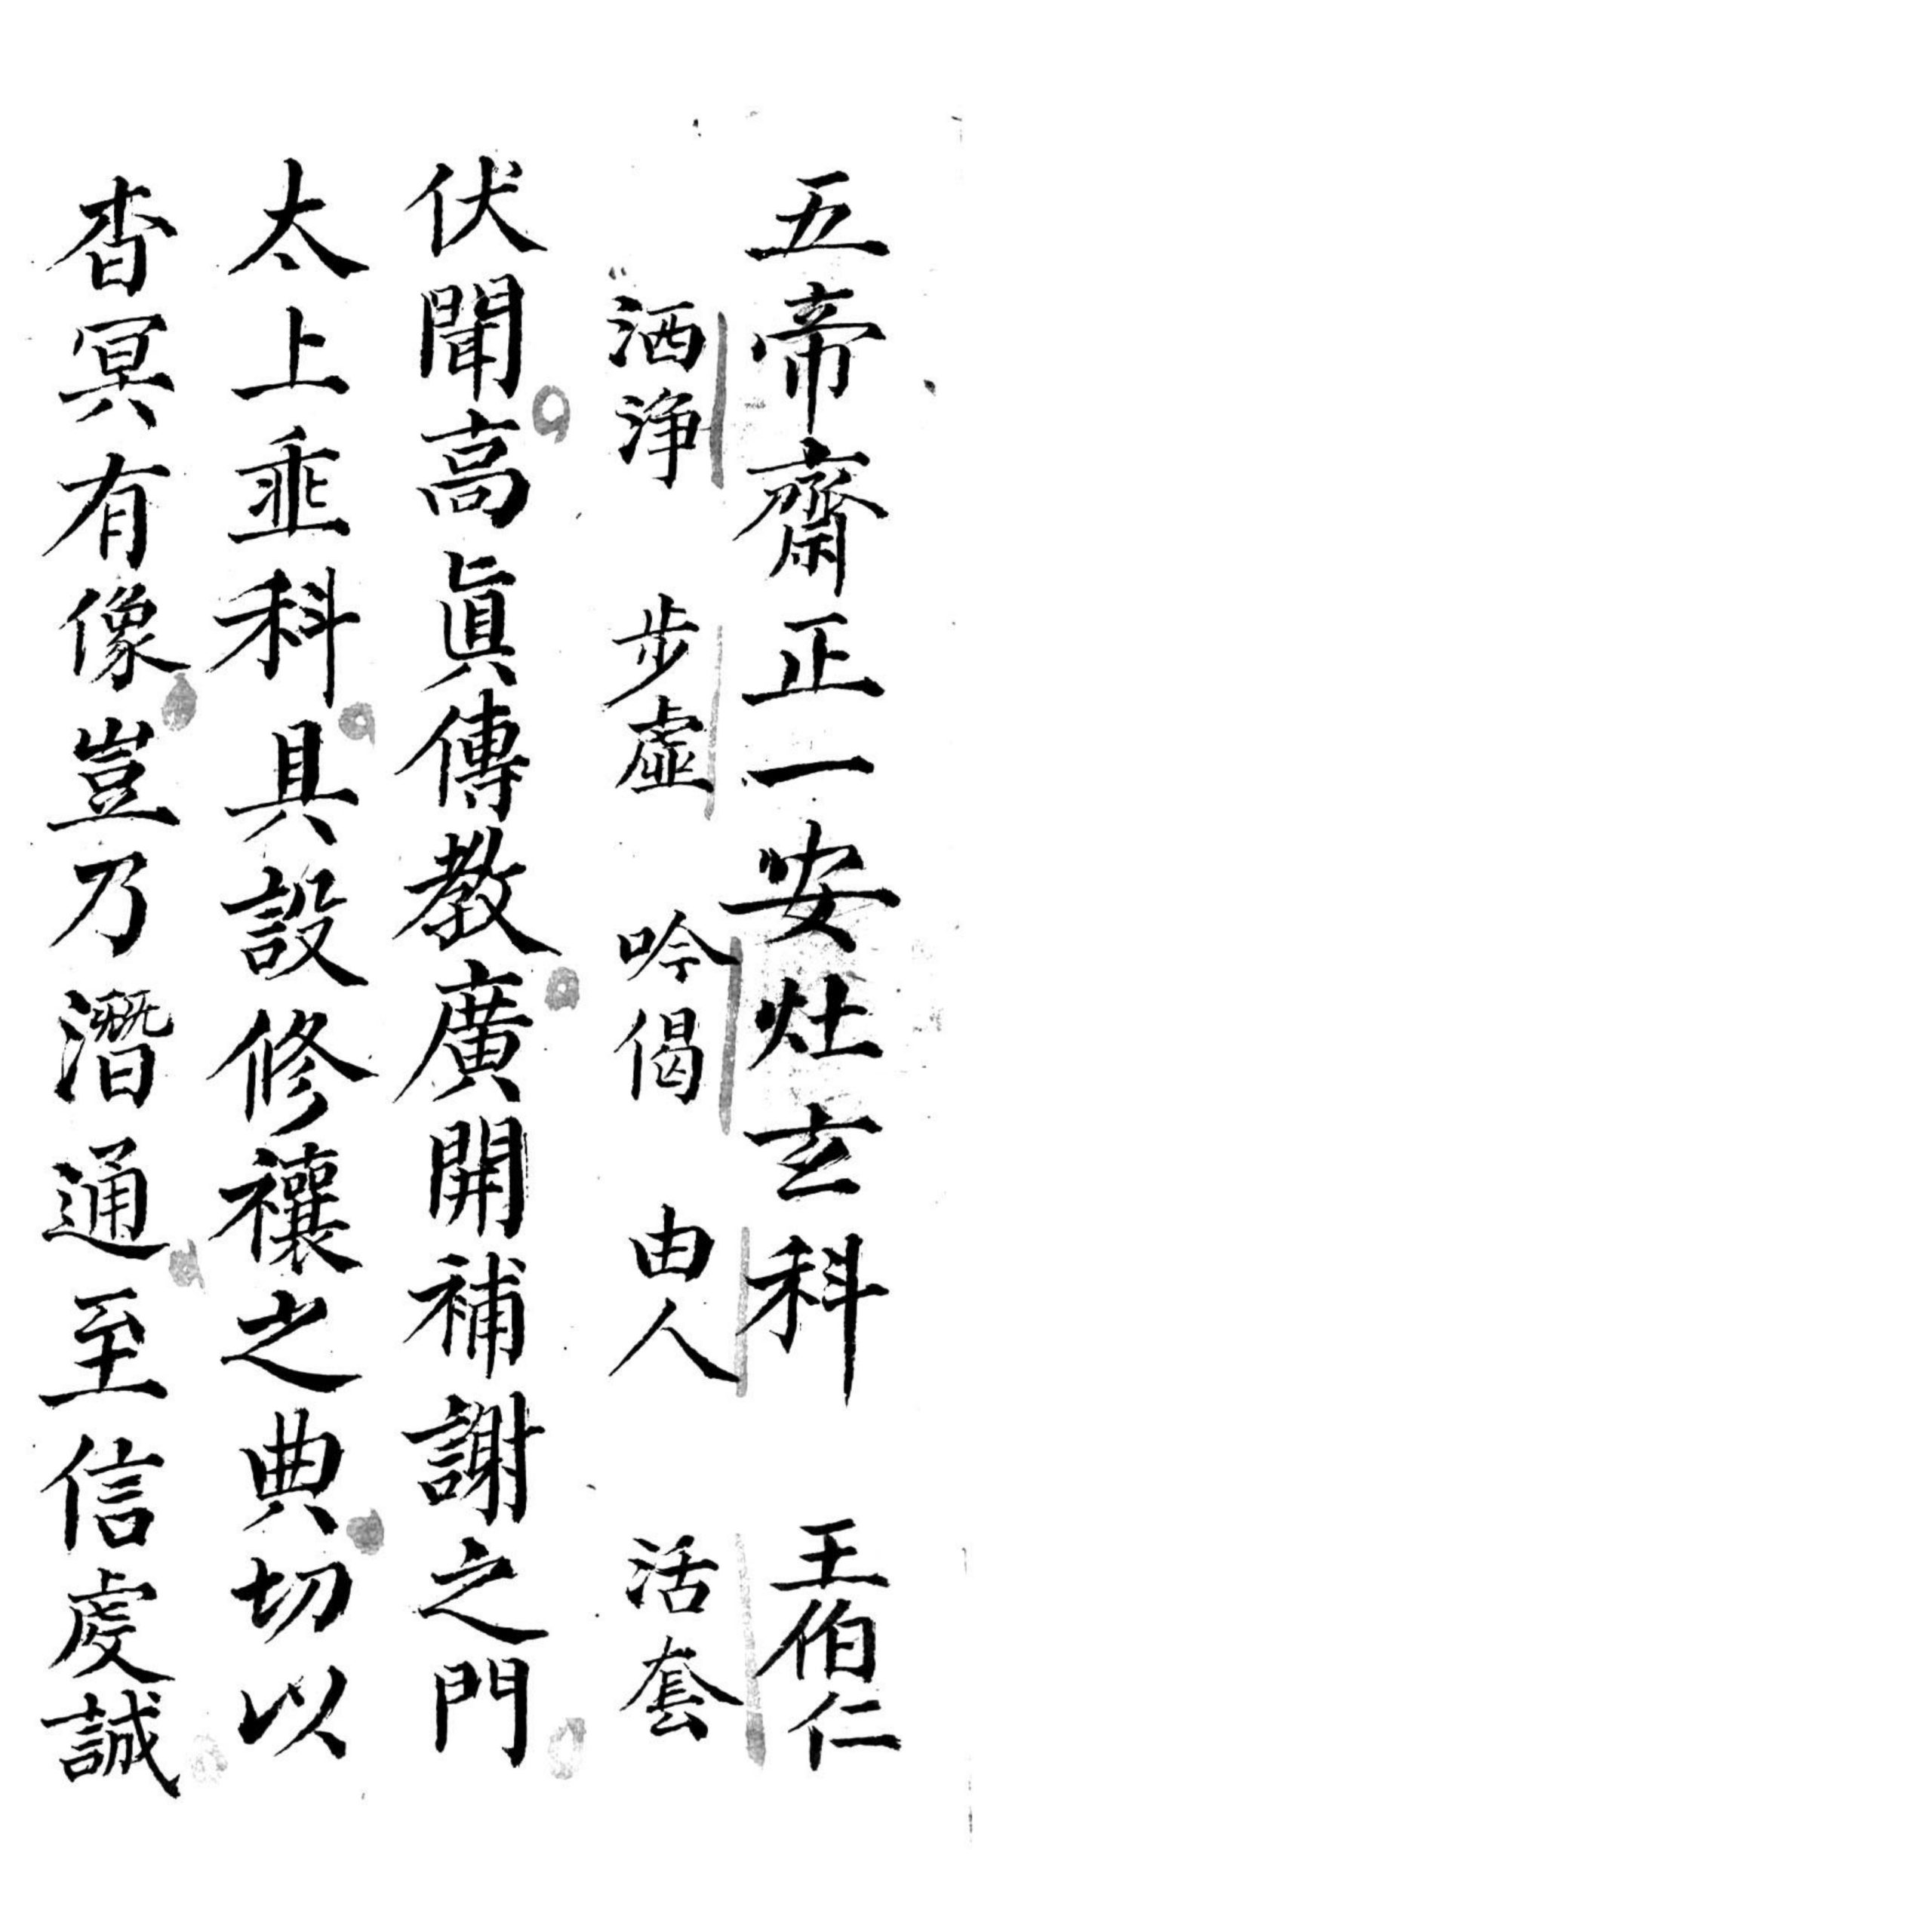 五帝齋正一安灶玄科 王伯仁
洒淨 步虛 吟偈 由人 活套
伏聞高眞傳教廣開補謝之門
太上垂科具設修禳之典切以
杳冥有像豈乃潛通至信處誠